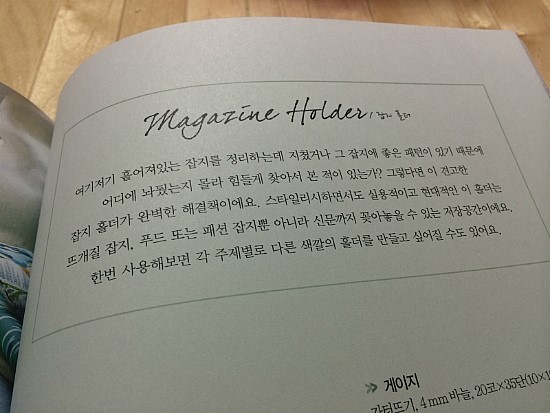 Magazine Holder / 잡지 홀더
여기저기 흩어져있는 잡지를 정리하는데 지쳤거나 그 잡지에 좋은 패턴이 있기 때문에
어디에 놔뒀는지 몰라 힘들게 찾아서 본 적이 있는가? 그렇다면 이 견고한
잡지 홀더가 완벽한 해결책이에요. 스타일리시하면서도 실용적이고 현대적인 이 홀더는
뜨개질 잡지, 푸드 또는 패션 잡지뿐 아니라 신문까지 꽂아놓을 수 있는 저장공간이에요.
한번 사용해보면 각 주제별로 다른 색깔의 홀더를 만들고 싶어질 수도 있어요.
게이지
가터뜨기, 4mm 바늘, 20코×35단(10×1